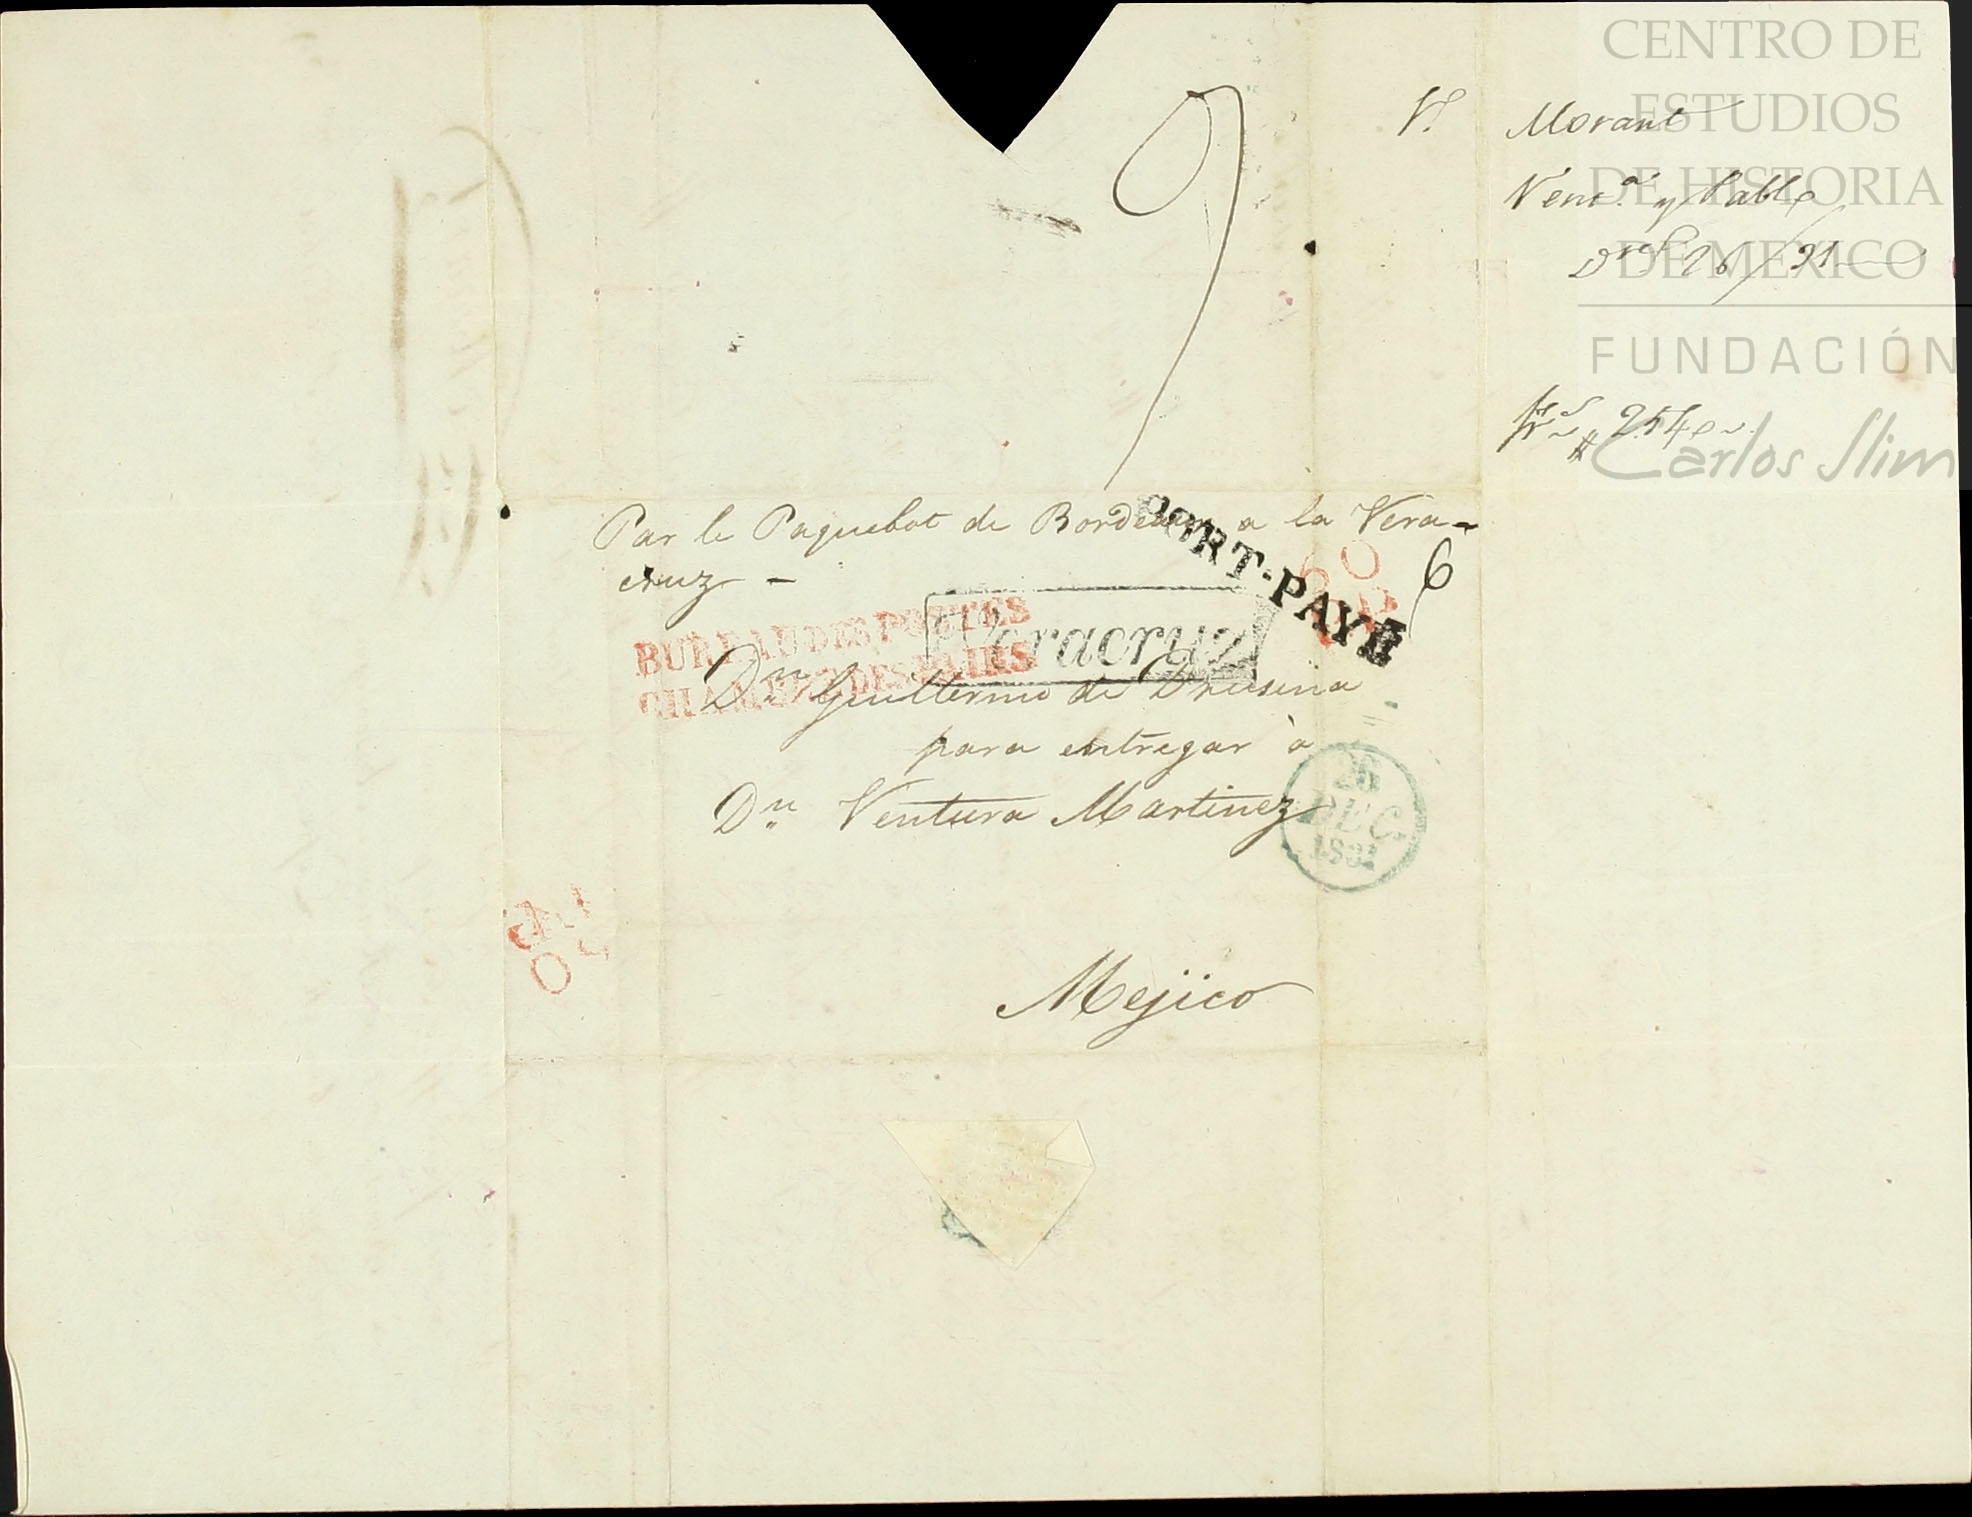 CENTRO DE
ESTUDIOS
DE HISTORIA
DE MEXICO
FUNDACIÓN
Carlos Slim
Morant
y Pablo
26/31
254
Par le Paquebot de Bordeaux a la Vera-
cruz -
PORT-PAYÉ
6
BUREAU DES POSTES
CHAMBRE DES PAIRS
Veracruz
Dn Guillermo de Drusina
para entregar à
Dn Ventura Martinez
26
DEC
1831
Mejico